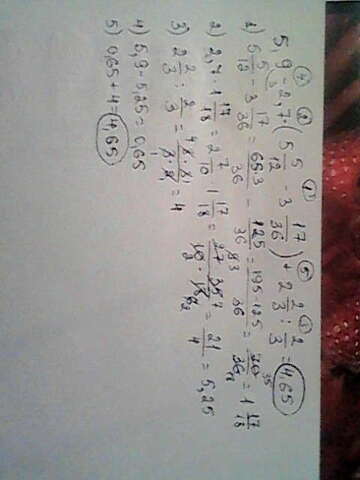 5,9 - 2,7 (5 5/12 - 3 17/36) + 2 2/3 : 2/3 = 4,65
1) 5 5/12 - 3 17/36 = 65\3/36 - 125/36 = 195-125/36 = 70/36 = 1 17/18
2) 2,7 · 1 17/18 = 2 7/10 · 1 17/18 = 27 · 35/10 · 18 = 21/4 = 5,25
3) 2 2/3 : 2/3 = 8 · 3/3 · 2 = 4
4) 5,9 - 5,25 = 0,65
5) 0,65 + 4 = 4,65